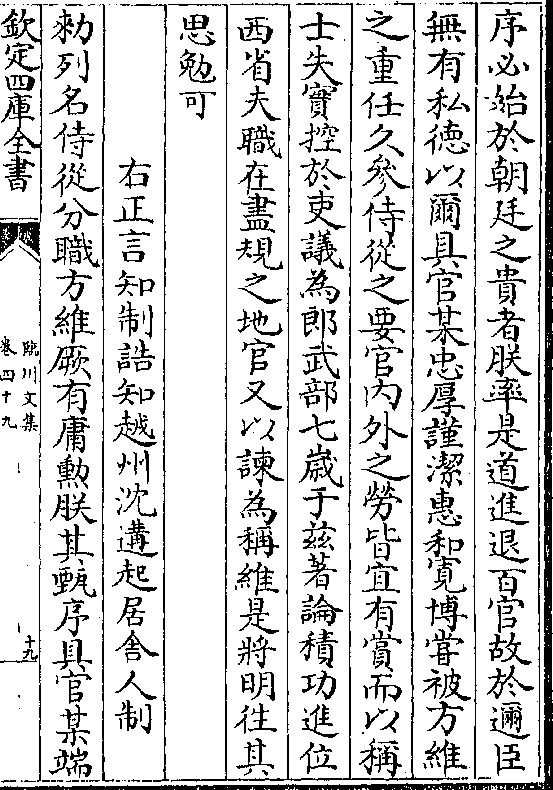 序必始於朝廷之貴者朕率是道進退百官故於邇臣
無有私德以爾具官某忠厚謹潔惠和寛博嘗被方維
之重任久參侍從之要官内外之勞皆宜有賞而以稱
士失實控於吏議為郎武部七歲于兹著論積功進位
西省夫職在盡規之地官又以諫為稱維是將明徃其
思勉可
右正言知制誥知越州沈遘起居舍人制
勑列名侍從分職方維厥有庸勲朕其甄序具官某端
欽定四庫全書
臨川文集
卷四十九
十九